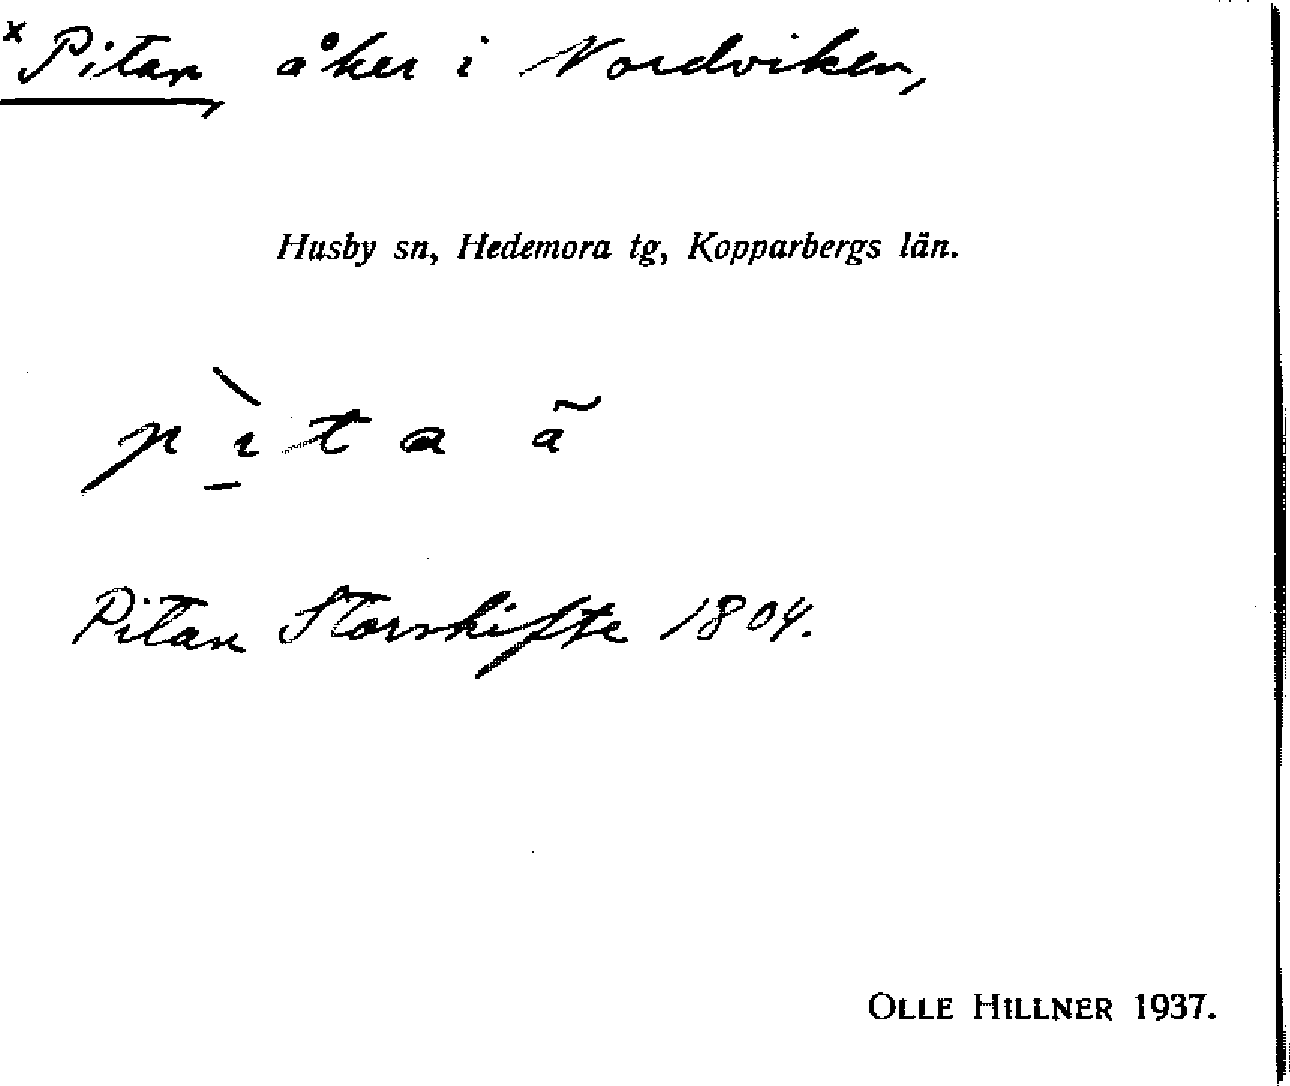 x Pitan, åker i Nordviken,
Husby sn, Hedemora tg, Kopparbergs län.
pı̱̀ta ã
Pitan Storskifte 1804.
OLLE HILLNER 1937.